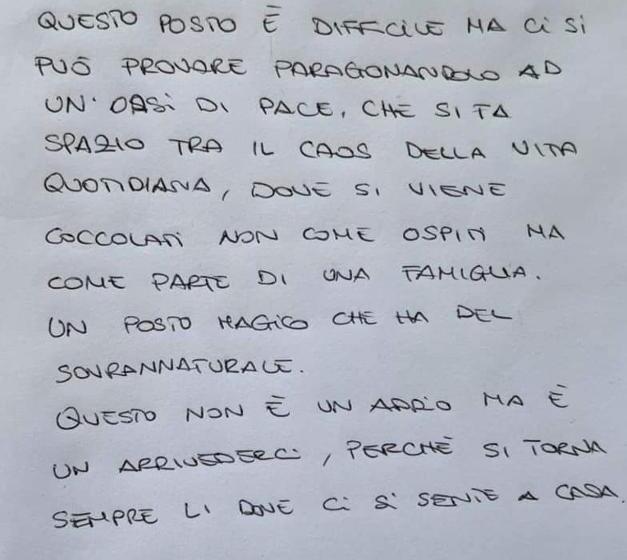 QUESTO POSTO È DIFFICILE MA CI SI
PUÒ PROVARE PARAGONANDOLO AD
UN'OASI DI PACE, CHE SI FA
SPAZIO TRA IL CAOS DELLA VITA
QUOTIDIANA, DOVE SI VIENE
COCCOLATI NON COME OSPITI MA
COME PARTE DI UNA FAMIGLIA.
UN POSTO MAGICO CHE HA DEL
SOVRANNATURALE.
QUESTO NON È UN ADDIO MA È
UN ARRIVEDERCI, PERCHÈ SI TORNA
SEMPRE LI DOVE CI SI SENTE A CASA.